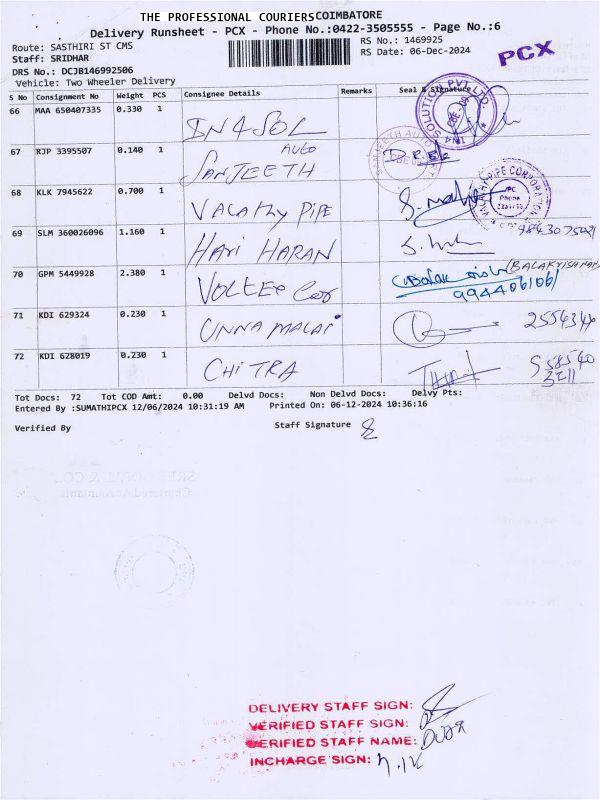 THE PROFESSIONAL COURIERS COIMBATORE
Delivery Runsheet - PCX - Phone No.:0422-3505555 - Page No.:6
Route: SASTHIRI ST CMS
RS No.: 1469925
Staff: SRIDHAR
RS Date: 06-Dec-2024
PCX
DRS No.: DCJB146992506
Vehicle: Two Wheeler Delivery
S No Consignment No Weight PCS Consignee Details Remarks Seal & Signature
66 MAA 650407335 0.330 1 IN4SOL
67 RJP 3395507 0.140 1 SANJEETH AUTO
68 KLK 7945622 0.700 1 VALATHY PIPE
PIPE CORPORATION
Phone
69 SLM 360026096 1.160 1 HARI HARAN
70 GPM 5449928 2.380 1 VOLTEE Car (BALAKRISHNAN)
9944061061
71 KDI 629324 0.230 1 UNNAMALAI
72 KDI 628019 0.230 1 CHITRA
Tot Docs: 72 Tot COD Amt: 0.00 Delvd Docs: Non Delvd Docs: Delvy Pts:
Entered By :SUMATHIPCX 12/06/2024 10:31:19 AM Printed On: 06-12-2024 10:36:16
Verified By Staff Signature
DELIVERY STAFF SIGN:
VERIFIED STAFF SIGN:
VERIFIED STAFF NAME:
INCHARGE SIGN: